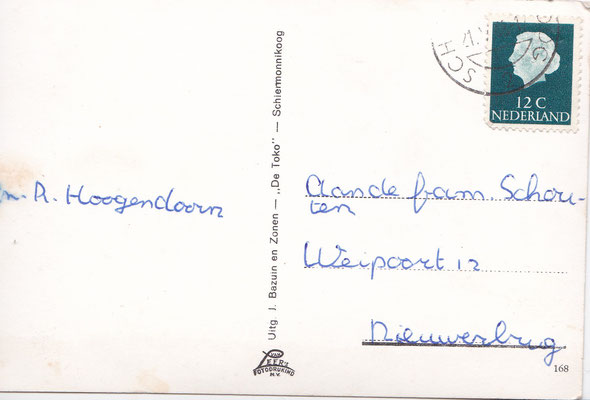 A. Hoogendoorn
Uitg. J. Bazuin en Zonen — „De Toko” — Schiermonnikoog
VAN
LEER'S
FOTODRUKIND
N.V.
SCH
12 C
NEDERLAND
Aan de fam. Schou-
ten
Weipoort 12
Nieuwerbrug.
168